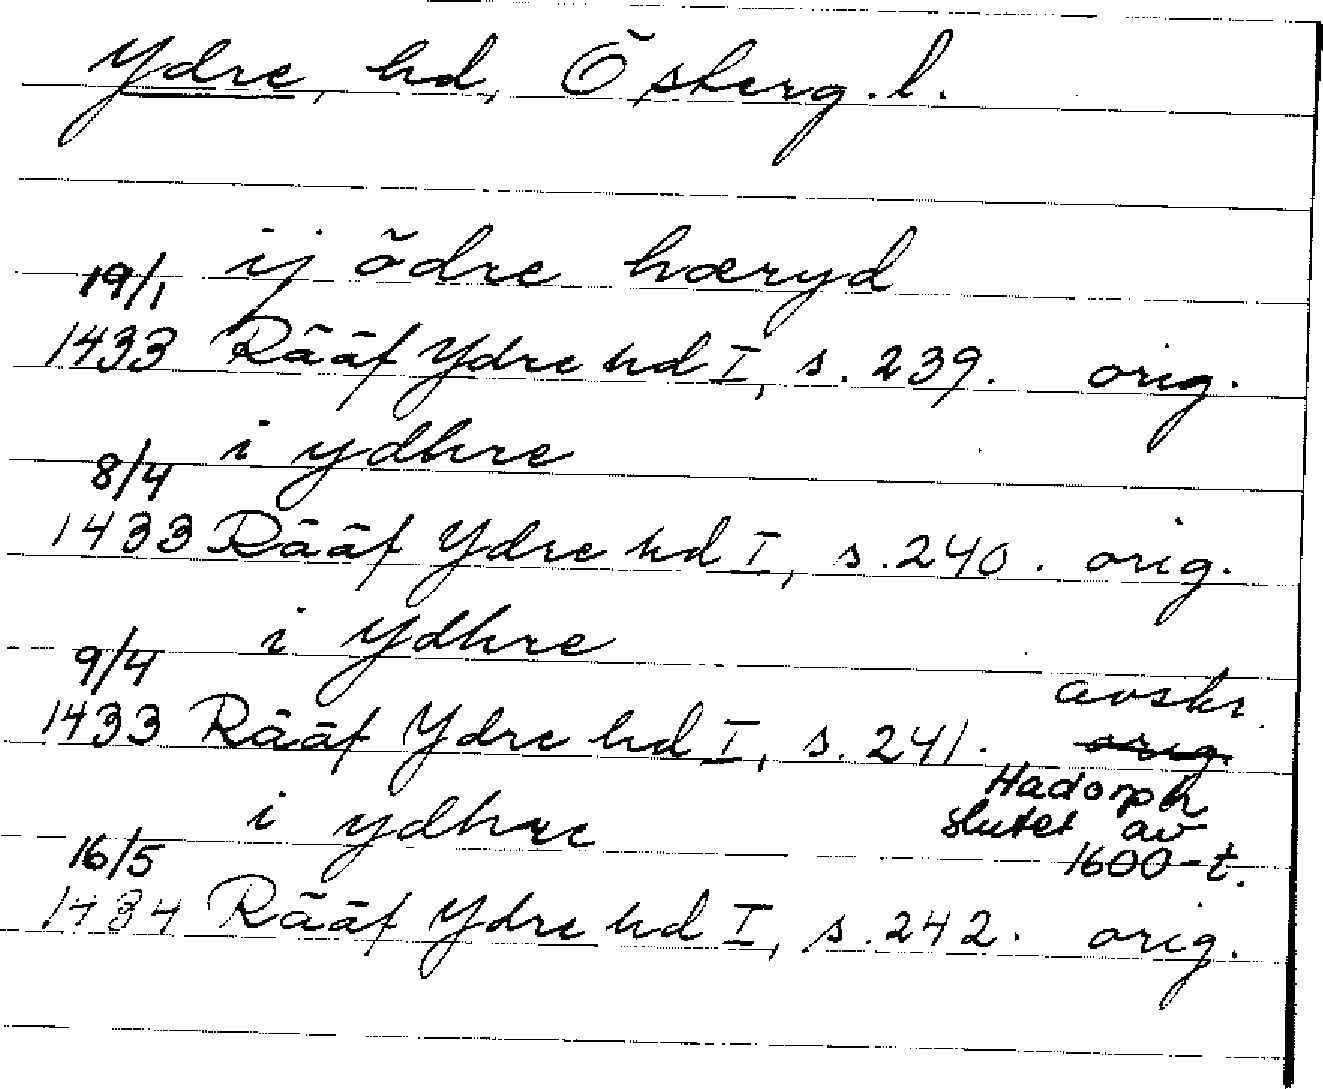 Ydre, hd, Österg. l.
19/1 ij ödre hæryd
1433 Rääf Ydre hd I, s. 239. orig.
8/4 i ydhre
1433 Rääf Ydre hd I, s. 240. orig.
9/4 i Ydhre
avskr.
1433 Rääf Ydre hd I, s. 241. orig.
Hadorph
slutet av
1600-t.
16/5 i ydhre
1434 Rääf Ydre hd I, s. 242. orig.